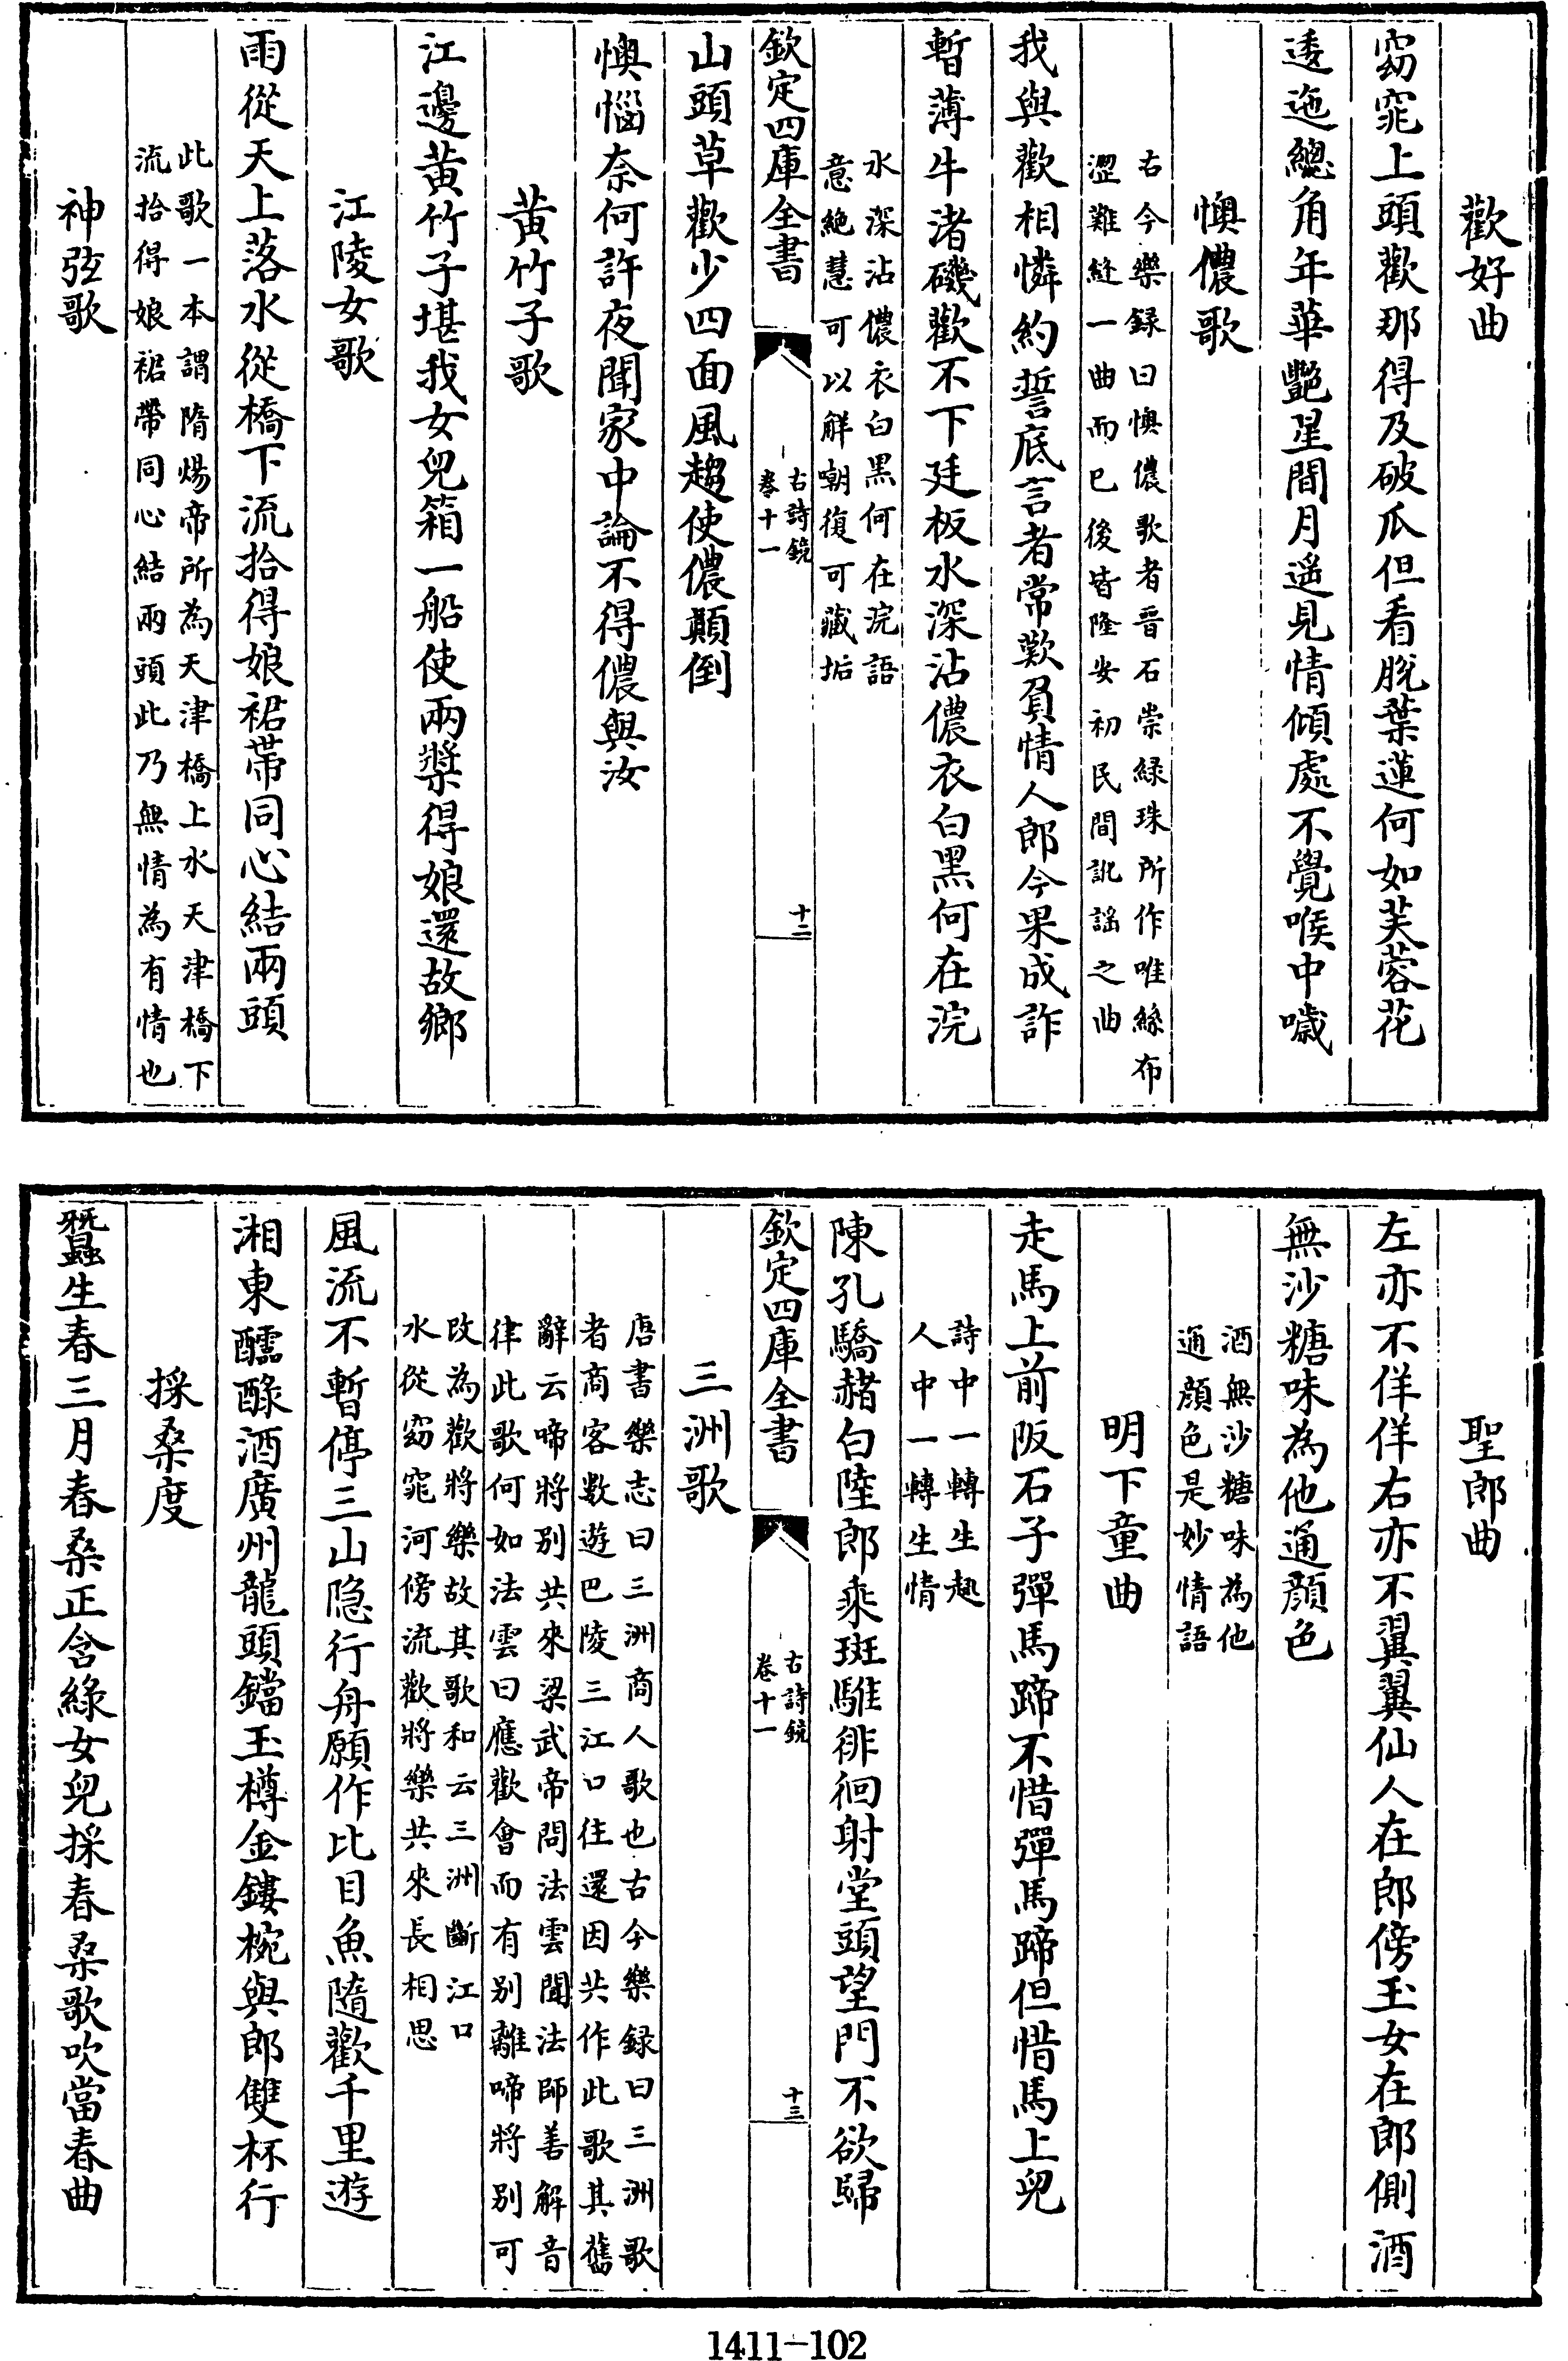 歡好曲
窈窕上頭歡那得及破瓜但看脫葉蓮何如芙蓉花
逶迤總角年華艷星間月遥見情傾處不覺喉中噦
懊儂歌
右今樂録曰懊儂歌者晋石崇緑珠所作唯絲布
澀難縫一曲而已後皆隆安初民間訛謡之曲
我與歡相憐約誓底言者常歎負情人郎今果成詐
暫薄牛渚磯歡不下廷板水深沾儂衣白黑何在浣
水深沾儂衣白黑何在浣語
意絶慧可以解嘲復可藏垢
欽定四庫全書
古詩鏡
卷十一
十二
山頭草歡少四面風趨使儂顛倒
懊惱奈何許夜聞家中論不得儂與汝
黄竹子歌
江邊黄竹子堪我女兒箱一船使兩槳得娘還故鄉
江陵女歌
雨從天上落水從橋下流拾得娘裙帶同心結兩頭
此歌一本謂隋煬帝所為天津橋上水天津橋下
流拾得娘裙帶同心結兩頭此乃無情為有情也
神弦歌
聖郎曲
左亦不佯佯右亦不翼翼仙人在郎傍玉女在郎側酒
無沙糖味為他通顔色
酒無沙糖味為他
通顔色是妙情語
明下童曲
走馬上前阪石子彈馬蹄不惜彈馬蹄但惜馬上兒
詩中一轉生趣
人中一轉生情
陳孔驕赭白陸郎乘斑騅徘徊射堂頭望門不欲歸
欽定四庫全書
古詩鏡
卷十一
十三
三洲歌
唐書樂志曰三洲商人歌也古今樂録曰三洲歌
者商客數遊巴陵三江口往還因共作此歌其舊
辭云啼將别共來梁武帝問法雲聞法師善解音
律此歌何如法雲曰應歡會而有别離啼將别可
改為歡將樂故其歌和云三洲斷江口
水從窈窕河傍流歡將樂共來長相思
風流不暫停三山隐行舟願作比目魚隨歡千里遊
湘東醽醁酒廣州龍頭鐺玉樽金鏤椀與郎雙杯行
採桑度
蠶生春三月春桑正含綠女兒採春桑歌吹當春曲
1411-102